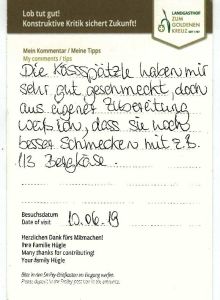 Lob tut gut!
Konstruktive Kritik sichert Zukunft!
LANDGASTHOF
ZUM
GOLDENEN
KREUZ
Mein Kommentar / Meine Tipps
My comments / tips
Die Kässspätzle haben mir
sehr gut geschmeckt, doch
aus eigener Zubereitung
weiß ich, dass sie noch
besser schmecken mit z.B.
1/3 Bergkäse.
Besuchsdatum
Date of visit
10.06.19
Herzlichen Dank fürs Mitmachen!
Ihre Familie Hügle
Many thanks for contributing!
Your family Hügle
Bitte in den Smiley-Briefkasten am Eingang werfen.
Please deposit in the Smiley post box in the entrance.